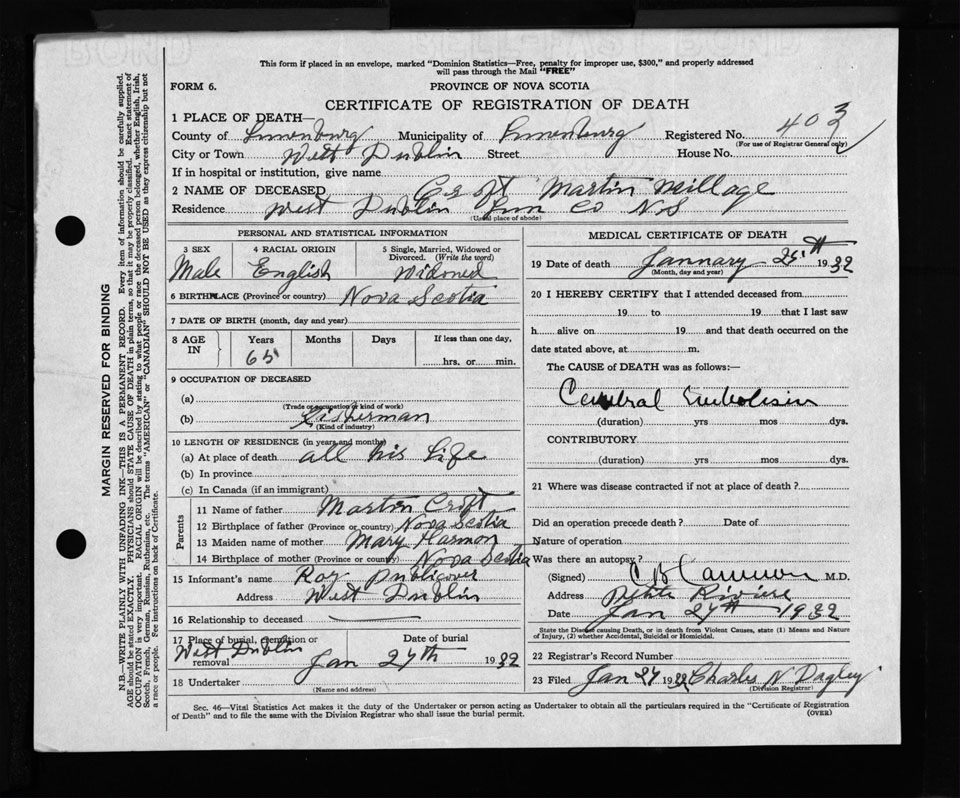 This form if placed in an envelope, marked "Dominion Statistics—Free, penalty for improper use, $300," and properly addressed
will pass through the Mail "FREE"
FORM 6.
PROVINCE OF NOVA SCOTIA
CERTIFICATE OF REGISTRATION OF DEATH
1 PLACE OF DEATH—
County of Lunenburg Municipality of Lunenburg Registered No. 403
(For use of Registrar General only)
City or Town West Dublin Street House No.
If in hospital or institution, give name
2 NAME OF DECEASED Croft Martin Millage
Residence West Dublin Lun Co N.S
(Usual place of abode)
PERSONAL AND STATISTICAL INFORMATION
3 SEX 4 RACIAL ORIGIN 5 Single, Married, Widowed or
Divorced. (Write the word)
Male English Widowed
6 BIRTHPLACE (Province or country) Nova Scotia
7 DATE OF BIRTH (month, day and year)
8 AGE IN Years Months Days If less than one day,
65 hrs. or min.
9 OCCUPATION OF DECEASED
(a)
(Trade or occupation or kind of work)
(b) Fisherman
(Kind of industry)
10 LENGTH OF RESIDENCE (in years and months)
(a) At place of death all his life
(b) In province
(c) In Canada (if an immigrant)
Parents
11 Name of father Martin Croft
12 Birthplace of father (Province or country) Nova Scotia
13 Maiden name of mother Mary Harmon
14 Birthplace of mother (Province or country) Nova Scotia
15 Informant's name Roy Publicover
Address West Dublin
16 Relationship to deceased
17 Place of burial, cremation or Date of burial
West Dublin
removal Jan 27th 1932
18 Undertaker
(Name and address)
MEDICAL CERTIFICATE OF DEATH
19 Date of death January 25th 1932
(Month, day and year)
20 I HEREBY CERTIFY that I attended deceased from
19 to 19 that I last saw
h alive on 19 and that death occurred on the
date stated above, at m.
The CAUSE of DEATH was as follows:—
Cerebral Embolism
(duration) yrs mos dys.
CONTRIBUTORY
(duration) yrs mos dys.
21 Where was disease contracted if not at place of death?
Did an operation precede death? Date of
Nature of operation
Was there an autopsy?
(Signed) C B Cameron M.D.
Address Petite Riviere
Date Jan 27th 1932
State the Disease causing Death, or in death from Violent Causes, state (1) Means and Nature
of Injury, (2) whether Accidental, Suicidal or Homicidal.
22 Registrar's Record Number
23 Filed Jan 27 1932 Charles N Dagley
(Division Registrar)
Sec. 46—Vital Statistics Act makes it the duty of the Undertaker or person acting as Undertaker to obtain all the particulars required in the "Certificate of Registration
of Death" and to file the same with the Division Registrar who shall issue the burial permit.
(OVER)
MARGIN RESERVED FOR BINDING
N.B.—WRITE PLAINLY WITH UNFADING INK—THIS IS A PERMANENT RECORD. Every item of information should be carefully supplied.
AGE should be stated EXACTLY. PHYSICIANS should STATE CAUSE OF DEATH in plain terms, so that it may be properly classified. Exact statement of
OCCUPATION is very important. RACIAL ORIGIN will be described by stating to what people or race the deceased person belonged, whether English, Irish,
Scotch, French, German, Russian, Ruthenian, etc. The terms "AMERICAN" or "CANADIAN" SHOULD NOT BE USED as they express citizenship but not
a race or people. Fee instructions on back of Certificate.